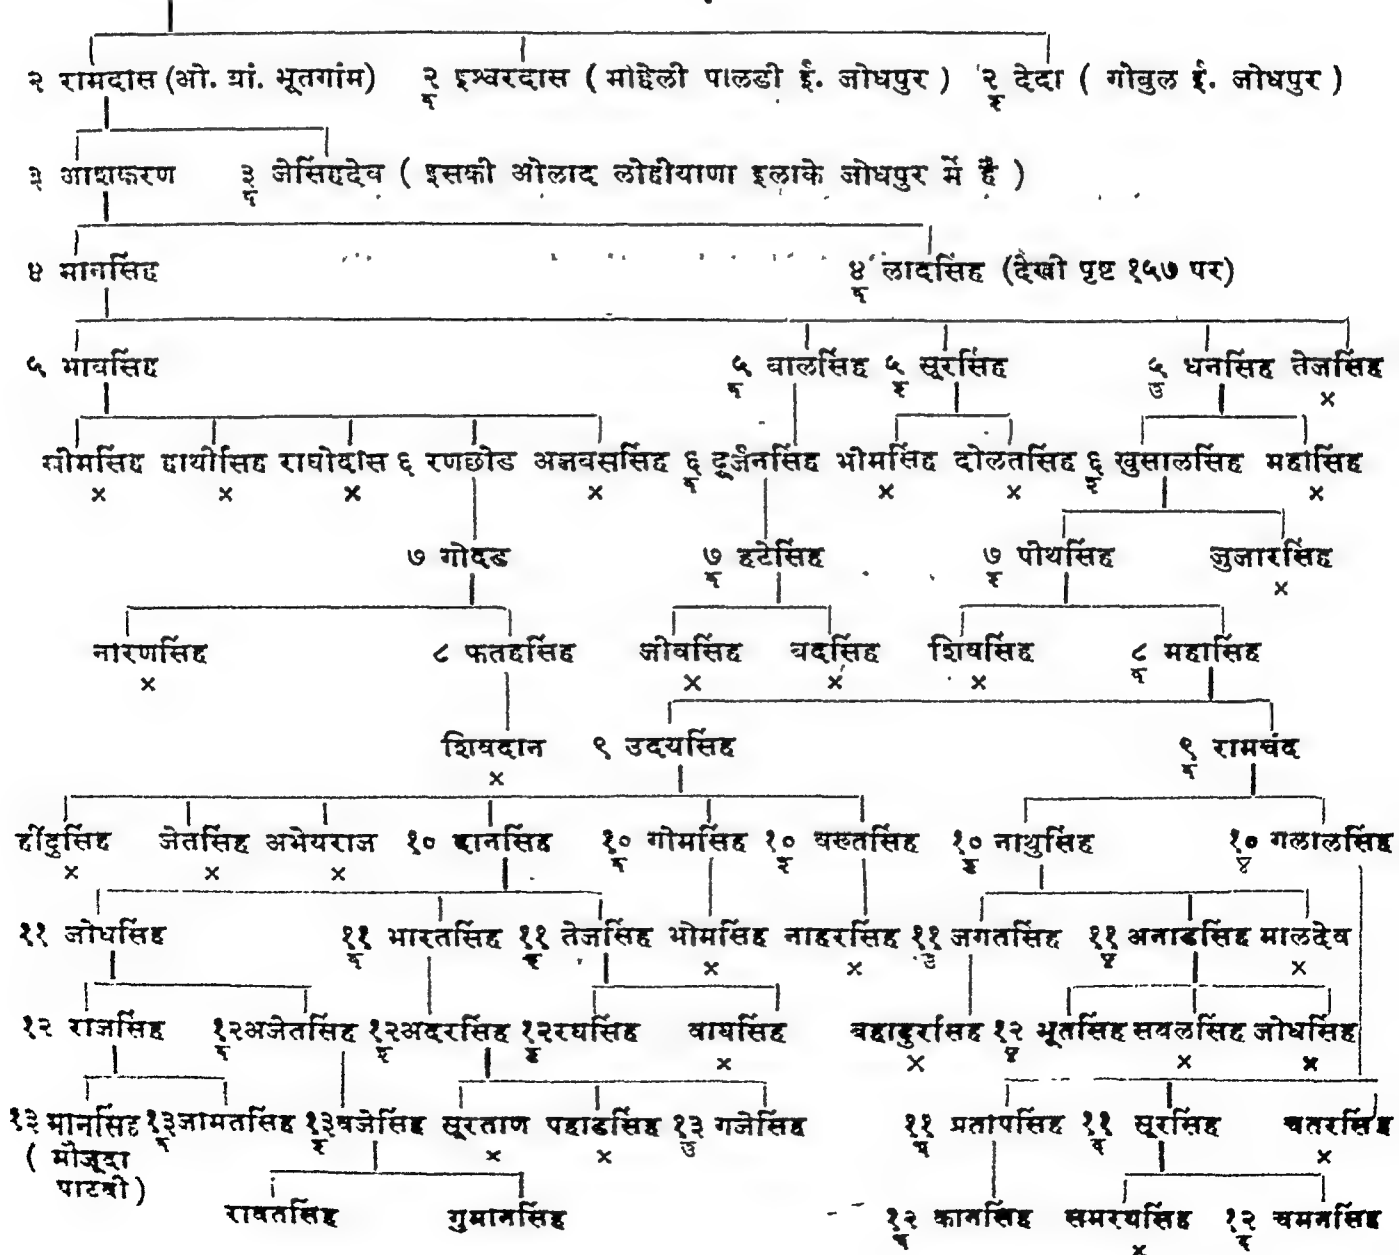 २ रामदास (ओ. ग्रां. भूतगांम) २/द इश्वरदास ( मोहेली पालडी ई. जोधपुर ) २/इ देदा ( गोबुल ई. जोधपुर )
३ आशकरण ३/द जेसिंहदेव ( इसकी ओलाद लोहीयाणा इलाके जोधपुर में है )
४ मानसिंह ४/द लादसिंह (देखो पृष्ट १५७ पर)
५ भावसिंह ५/द वालसिंह ५/इ सूरसिंह ५/उ धनसिंह तेजसिंह
×
खीमसिंह हाथीसिंह राघोदास ६ रणछोड अजवससिंह ६/द दूर्जनसिंह भीमसिंह दोलतसिंह ६/इ खुसालसिंह महासिंह
× × × × × × ×
७ गोदड ७/द हटेसिंह ७/इ पोथसिंह जुजारसिंह
×
नारणसिंह ८ फतहसिंह जीवसिंह वदसिंह शिवसिंह ८/द महासिंह
× × × ×
शिवदान ९ उदयसिंह ९/द रामचंद
×
हींदुसिंह जेतसिंह अभेयराज १० दानसिंह १०/द गोमसिंह १०/इ वख्तसिंह १०/ई नाथुसिंह १०/४ गलालसिंह
× × ×
११ जोधसिंह ११/द भारतसिंह ११/इ तेजसिंह भोमसिंह नाहरसिंह ११/उ जगतसिंह ११/४ अनाडसिंह मालदेव
× × ×
१२ राजसिंह १२/द अजेतसिंह १२/इ अदरसिंह १२/ई रघसिंह वाघसिंह बहादुरसिंह १२/४ भूतसिंह सवलसिंह जोधसिंह
× × × ×
१३ मानसिंह १३/द जामतसिंह १३/इ वजेसिंह सूरताण पहाडसिंह १३/उ गजेसिंह ११/प्र प्रतापसिंह ११/द सूरसिंह चतरसिंह
( मौजूदा × × ×
पाटवी )
रावतसिंह गुमानसिंह १२/द कानसिंह समरथसिंह १२/द चमनसिंह
×